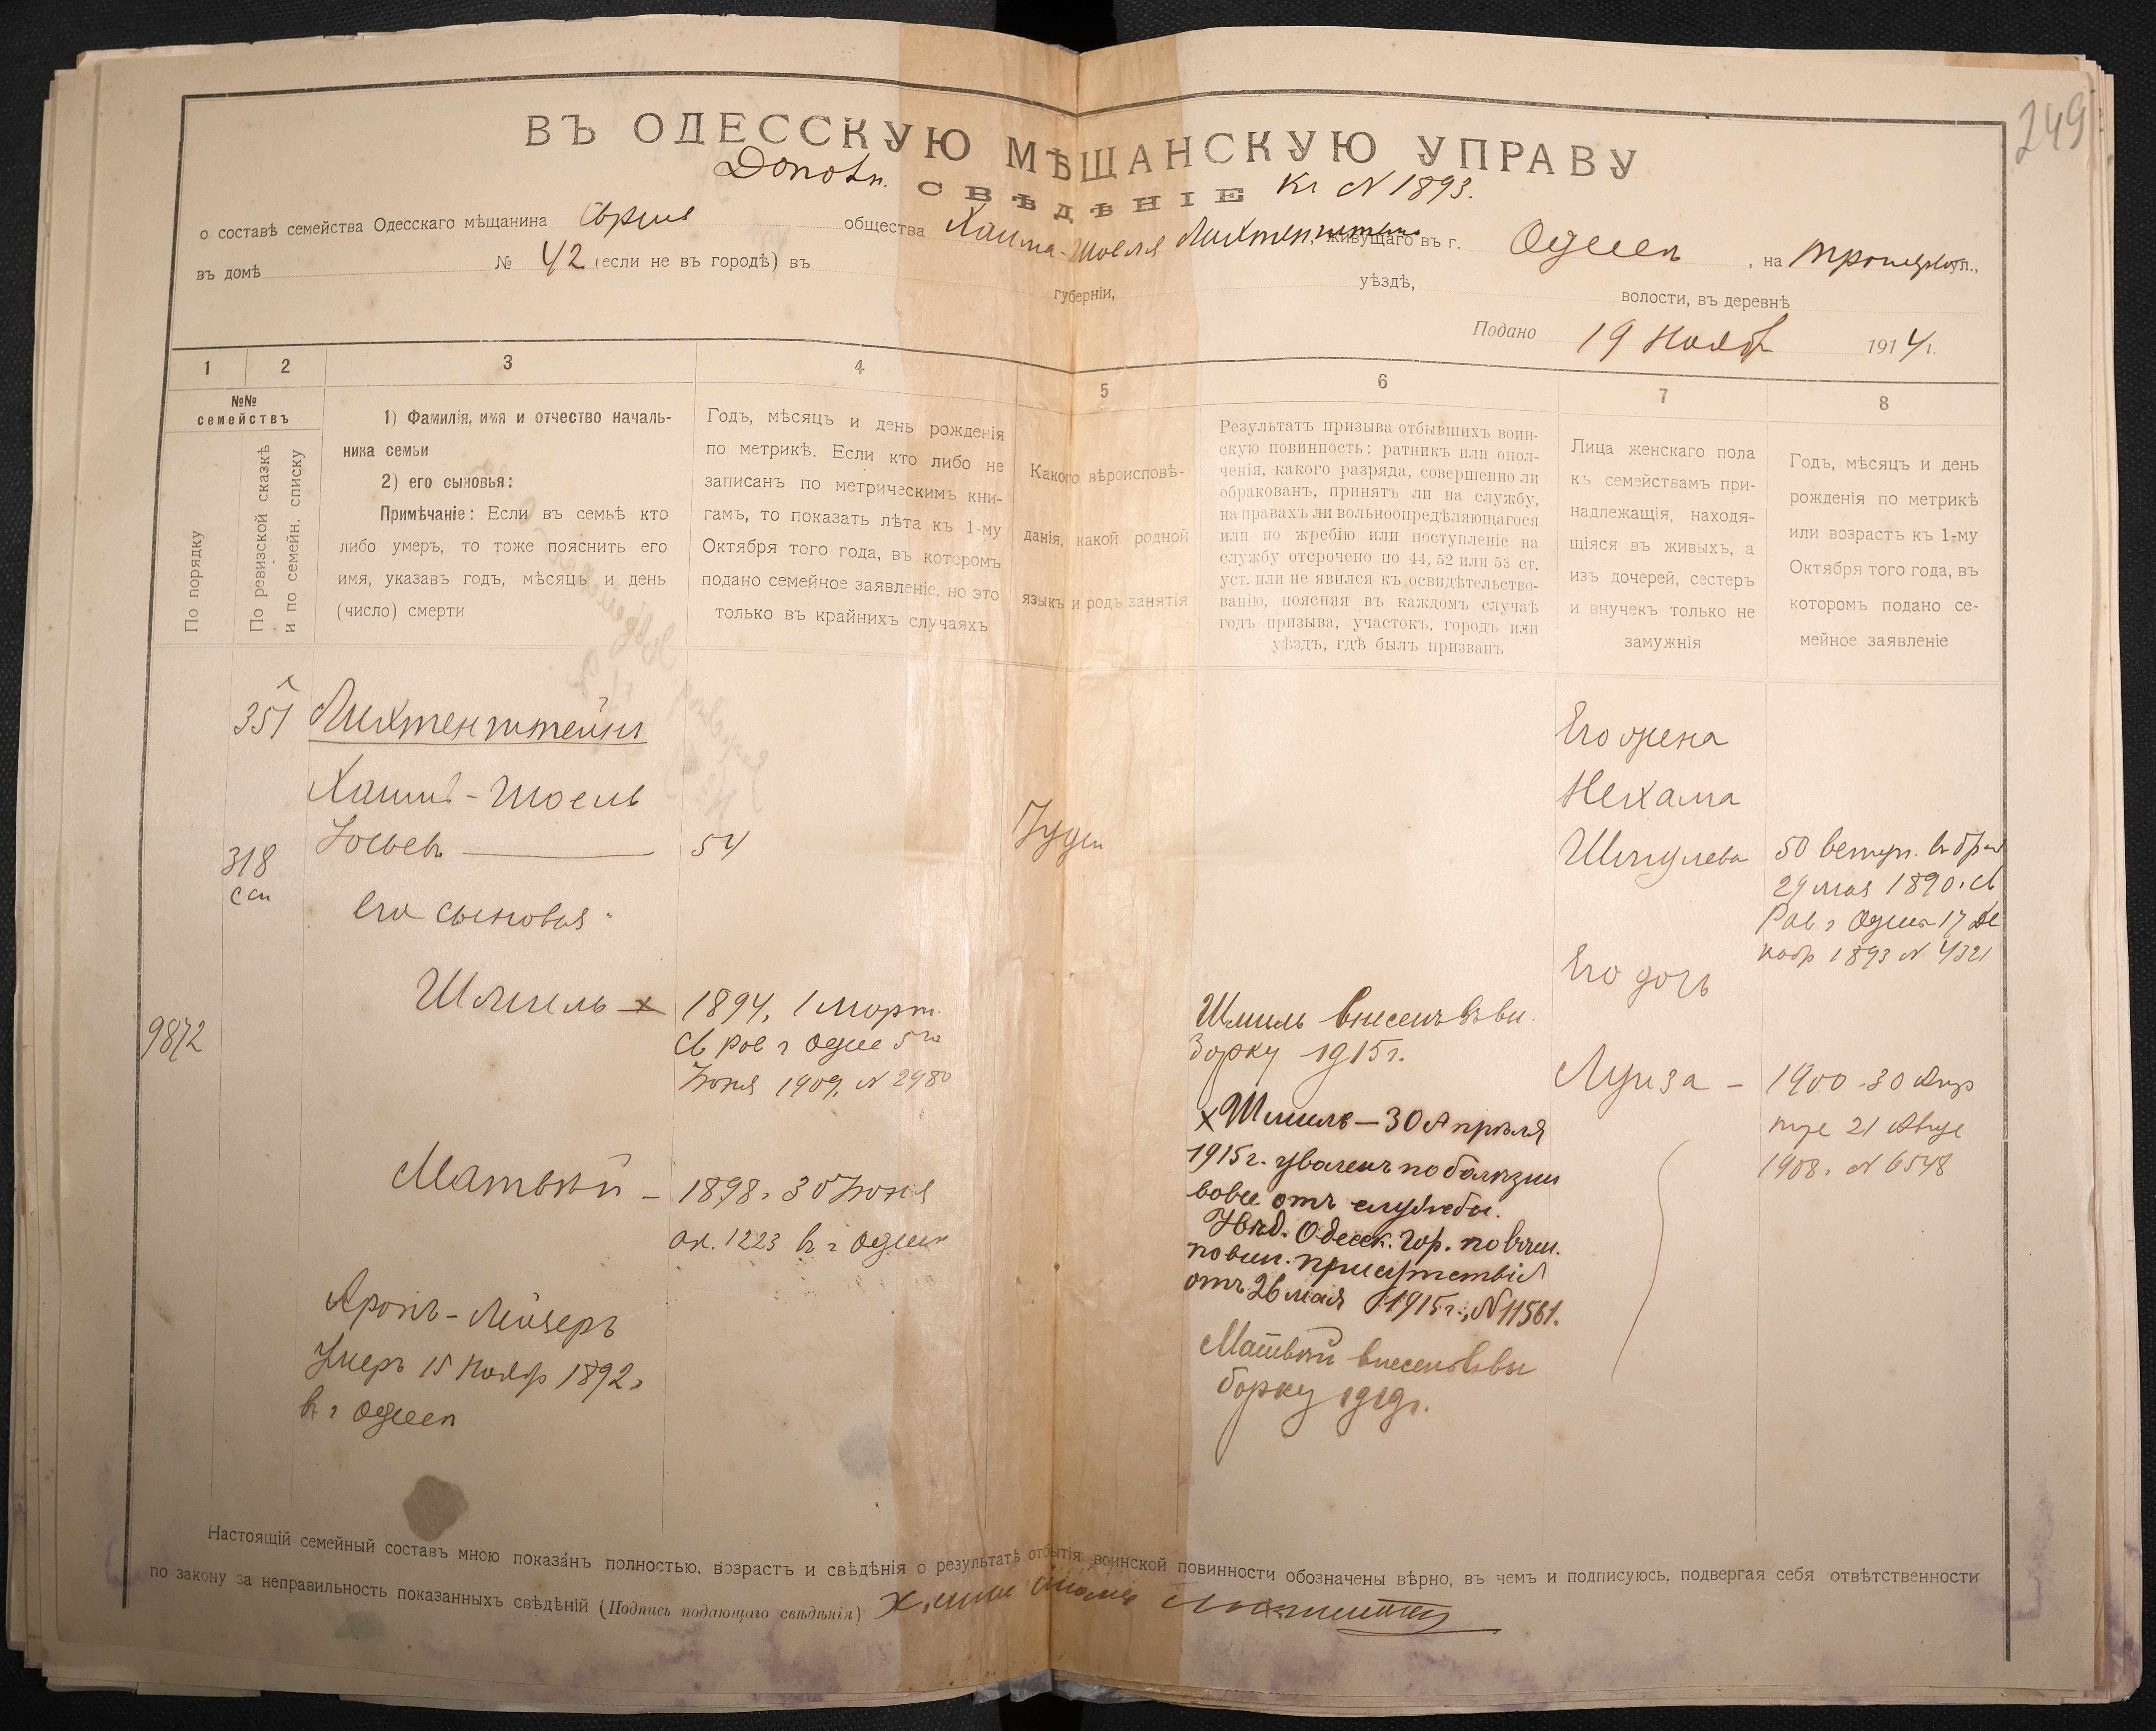 249
ВЪ ОДЕССКУЮ МѢЩАНСКУЮ УПРАВУ
СВѢДѢНІЕ
Дополн. Кг № 1893.
о составѣ семейства Одесскаго мѣщанина общества Хаима-Шоеля Лихтенштейна, живущаго въ г. Одессѣ, на Троицкой ул.,
въ домѣ № 42 (если не въ городѣ) въ губерніи, уѣздѣ, волости, въ деревнѣ
Подано 19 Ноябр 1914 г.
1 2 3 4 5 6 7 8
№№ семействъ
По порядку
По ревизской сказкѣ
и по семейн. списку
1) Фамилія, имя и отчество началь-
ника семьи
2) его сыновья:
Примѣчаніе: Если въ семьѣ кто
либо умеръ, то тоже пояснить его
имя, указавъ годъ, мѣсяцъ и день
(число) смерти
Годъ, мѣсяцъ и день рожденія
по метрикѣ. Если кто либо не
записанъ по метрическимъ кни-
гамъ, то показать лѣта къ 1-му
Октября того года, въ которомъ
подано семейное заявленіе, но это
только въ крайнихъ случаяхъ
Какого вѣроисповѣ-
данія, какой родной
языкъ и родъ занятія
Результатъ призыва отбывшихъ воин-
скую повинность: ратникъ или опол-
ченія, какого разряда, совершенно ли
обракованъ, принятъ ли на службу,
на правахъ ли вольноопредѣляющагося
или по жребію или поступленіе на
службу отсрочено по 44, 52 или 53 ст.
уст. или не явился къ освидѣтельство-
ванію, поясняя въ каждомъ случаѣ
годъ призыва, участокъ, городъ или
уѣздъ, гдѣ былъ призванъ
Лица женскаго пола
къ семействамъ при-
надлежащія, находя-
щіяся въ живыхъ, а
изъ дочерей, сестеръ
и внучекъ только не
замужнія
Годъ, мѣсяцъ и день
рожденія по метрикѣ
или возрастъ къ 1-му
Октября того года, въ
которомъ подано се-
мейное заявленіе
351
Лихтенштейнъ
Хаимъ-Шоель
Іосьевъ
54
318
Его сыновья:
Шмиль х
1894, 1 март.
Св рав г Одес 5го
Іюня 1909, № 2980
9872
Матвѣй –
1898 г 30 Іюня
ак. 1223 въ г Одессѣ
Аронъ-Лейзеръ
Умеръ 15 Ноябр 1892 г
въ г Одессѣ
Іудей
Шмиль внесенъ въ вы-
борку 1915 г.
х Шмиль – 30 Апрѣля
1915 г. уволенъ по болѣзни
вовсе отъ службы.
Увѣд. Одесск. гор. по воин.
повин. присутствія
отъ 26 мая 1915 г., № 11561.
Матвѣй внесенъ въ вы
борку 1919 г.
Его жена
Нехама
50 вступ. въ брак
29 мая 1890 г. св
Рав г Одессы 17 Де
кабр 1893 № 4321
Его дочь
Луиза –
1900 30 Апр
21 Авгус
1908 г. № 6548
Настоящій семейный составъ мною показанъ полностью, возрастъ и свѣдѣнія о результатѣ отбытія воинской повинности обозначены вѣрно, въ чемъ и подписуюсь, подвергая себя отвѣтственности
по закону за неправильность показанныхъ свѣдѣній (Подпись подающаго свѣдѣнія)